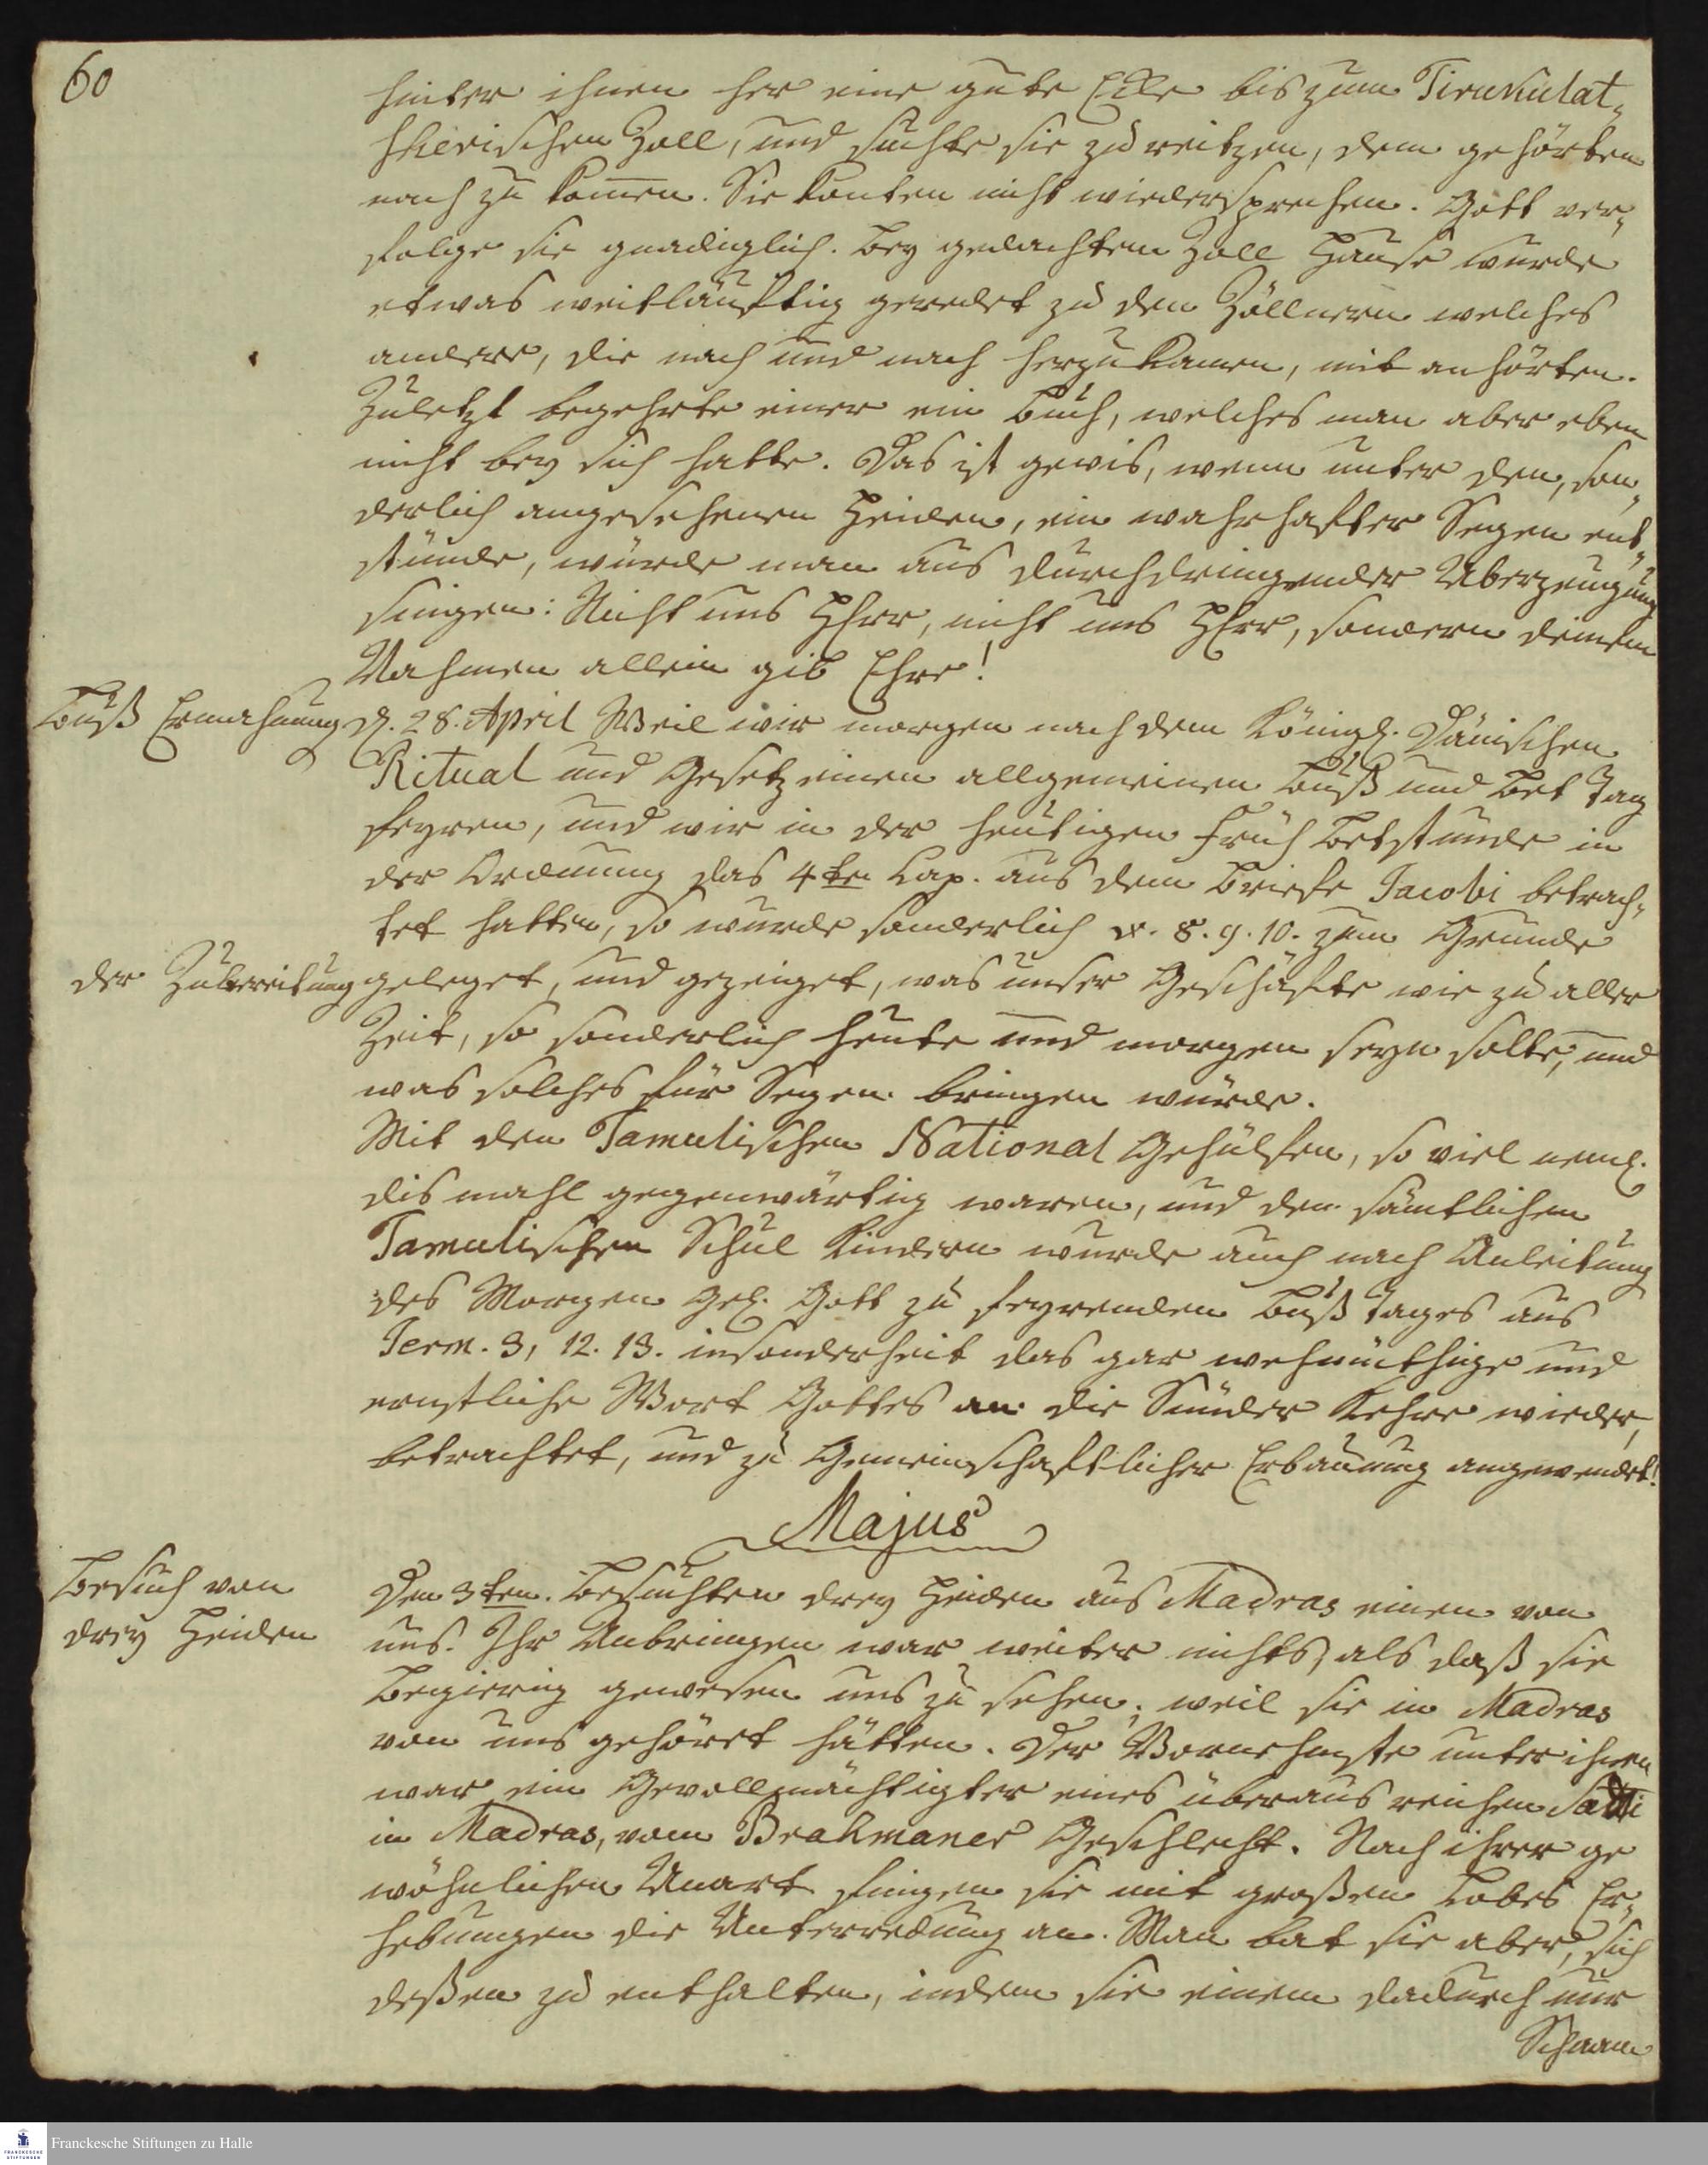 60
hinter ihnen her eine gute Ecke bis zum Tirukulat-
scherischen Zoll, und suchte sie zu reitzen, dem gehörten
nach zu kommen. Sie konten nicht wiedersprechen. Gott ver-
folge sie gnadiglich. Bey gedachtem Zoll Hause wurde
etwas weitläuftig geredet zu den Zöllnern welches
andere, die nach und nach herzu kamen, mit anhörten.
Zuletzt begehrte einer ein Buch, welches man aber eben
nicht bey sich hatte. Das ist gewis, wenn unter den, son-
derlich angesehenen Heiden, ein wahrhafter Segen ent-
stünde, würde man aus durchdringender Uberzeugung
singen: Nicht uns HErr, nicht uns HErr, sondern deinem
Nahmen allein gib Ehre!
Buß Ermahnung
d. 28. April Weil wir morgen nach dem Königl. Dänischen
Ritual und Gesetz einen allgemeinen Buß und Bet Tag
feyren, und wir in der heutigen Früh Betstunde in
der Ordnung das 4te Cap. aus dem Briefe Jacobi betrach-
tet hatten, so wurde sonderlich v. 8. 9. 10. zum Grunde
der Zubereitung
geleget, und gezeiget, was unser Geschäfte wie zu aller
Zeit, so sonderlich heute und morgen seyn solte, und
was solches für Segen bringen würde.
Mit den Tamulischen National Gehülfen, so viel neml.
dis mahl gegenwärtig waren, und den sämtlichen
Tamulischen Schul Kindern wurde auch nach Anleitung
des Morgen Gel. Gott zu feyrenden Buß Tages aus
Jerm. 3, 12. 13. insonderheit das gar wehmüthige und
ernstliche Wort Gottes an die Sünder Kehre wieder,
betrachtet, und zu Gemeinschaftlicher Erbauung angewendet!
Majus
Besuch von
drey Heiden
Den 3ten. Besuchten drey Heiden aus Madras einen von
uns. Ihr Anbringen war weiter nichts, als daß sie
Begierig gewesen uns zu sehen; weil sie in Madras
von uns gehöret hätten. Der Vornehmste unter ihnen
war ein Gevollmächtigter eines überaus reichen
in Madras, vom Brahmaner Geschlecht. Nach ihrer ge
wöhnlichen Unart fingen sie mit großen Lobes Er-
hebungen die Unterredung an. Man bat sie aber, sich
deßen zu enthalten, indem sie einem dadurch nur
Schaam
Franckesche Stiftungen zu Halle